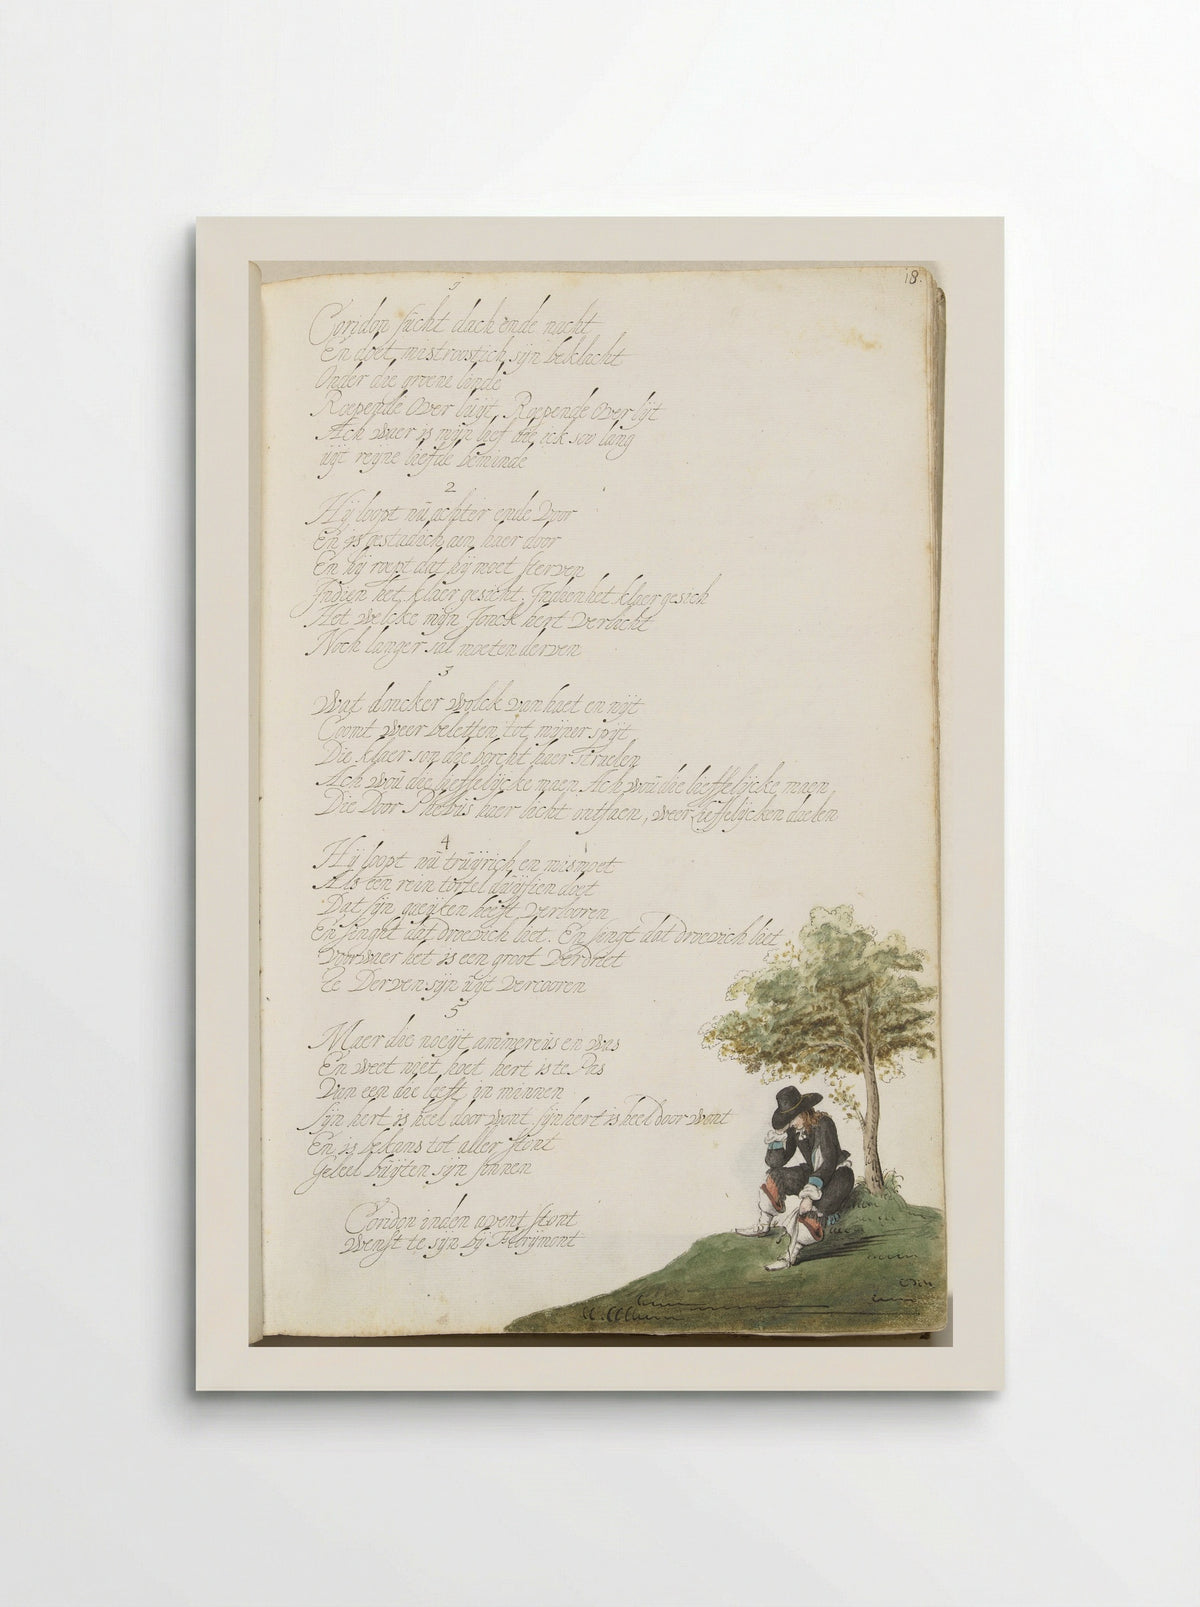 18.
1
Coridon sücht dach ende nacht
En doet mistroostich sijn beklacht
Onder die groene linde
Roepende over lüijt, Roepende over lijt
Ach waer is mijn lief die eck soo lang
uijt reijne liefde beminde
2
Hij loopt nü achter ende voor
En is gestadich aen haer door
En hij roept dat hij moet sterven
Indien het klaer gesicht. Indien het klaer gesich
Het welcke mijn Jonck hert verlicht
Noch langer sal moeten derven
3
Wat doncker wolck van haet en nijt
Coomt weer beletten tot mijner spijt
Die klaer son die borcht haer straelen
Ach woü die lieffelijcke maen Ach woü die lieffelijcke maen
Die Door Phebüs haer licht ontfaen, weer lieffelijcken daelen
4
Hij loopt nü trüijrich en mismoet
Als een rein tortel düijfien doet
Dat sijn gaeijken heeft verlooren
En singht dat droevich liet. En singt dat droevich liet
Voorwaer het is een groot verdriet
Te Derven sijn uijt vercooren
5
Maer die noeijt ammereüs en was
En weet niet hoet hert is te Pas
Van een die leeft in minnen
Sijn hert is heel door wont sijn hert is heel door wont
En is bekans tot aller stont
Geleel büijten sijn sinnen
Coridon inden avent stont
Wenst te sijn bij Roosemont